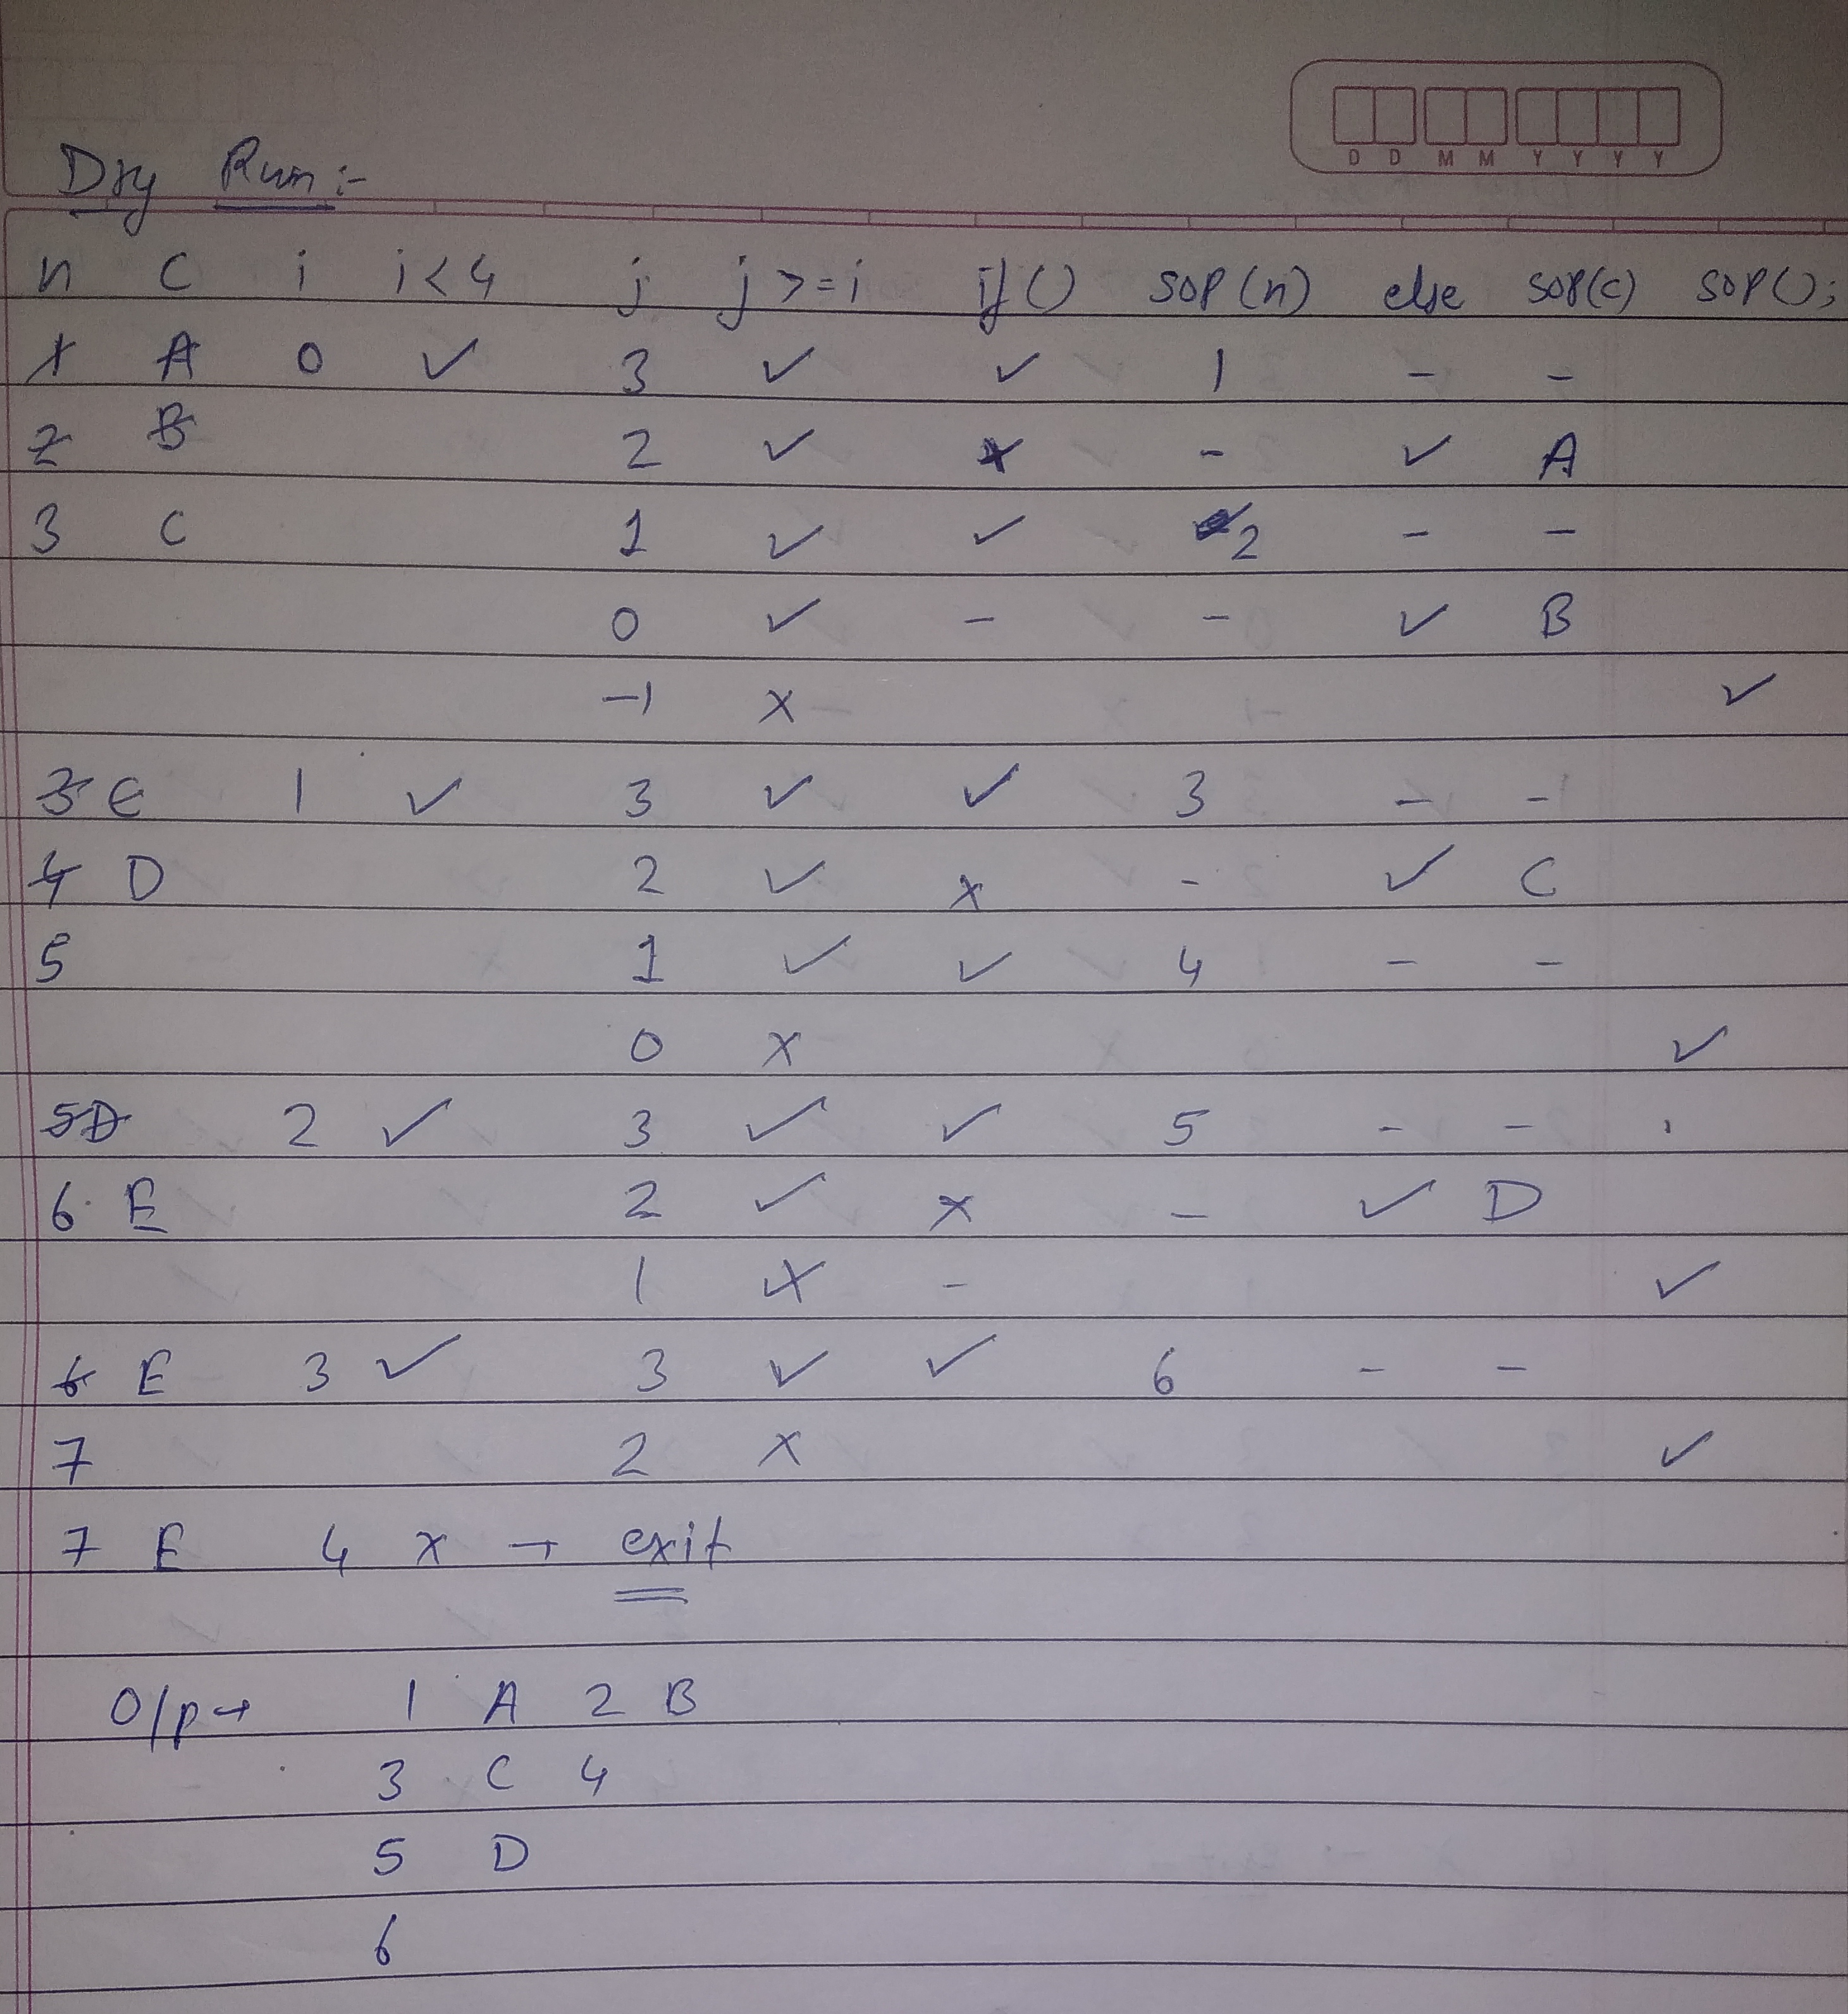 D D M M Y Y Y Y
Dry Run :-
n C i i<4 j j>=i if() SOP(n) else SOP(c) SOP();
1 A 0 ✓ 3 ✓ ✓ 1 - -
2 B 2 ✓ x - ✓ A
3 C 1 ✓ ✓ 2 - -
0 ✓ - - ✓ B
-1 x ✓
3 C 1 ✓ 3 ✓ ✓ 3 - -
4 D 2 ✓ x - ✓ C
5 1 ✓ ✓ 4 - -
0 x ✓
5 D 2 ✓ 3 ✓ ✓ 5 - -
6 E 2 ✓ x - ✓ D
1 x - ✓
6 E 3 ✓ 3 ✓ ✓ 6 - -
7 2 x ✓
7 E 4 x → exit
O/p → 1 A 2 B
3 C 4
5 D
6